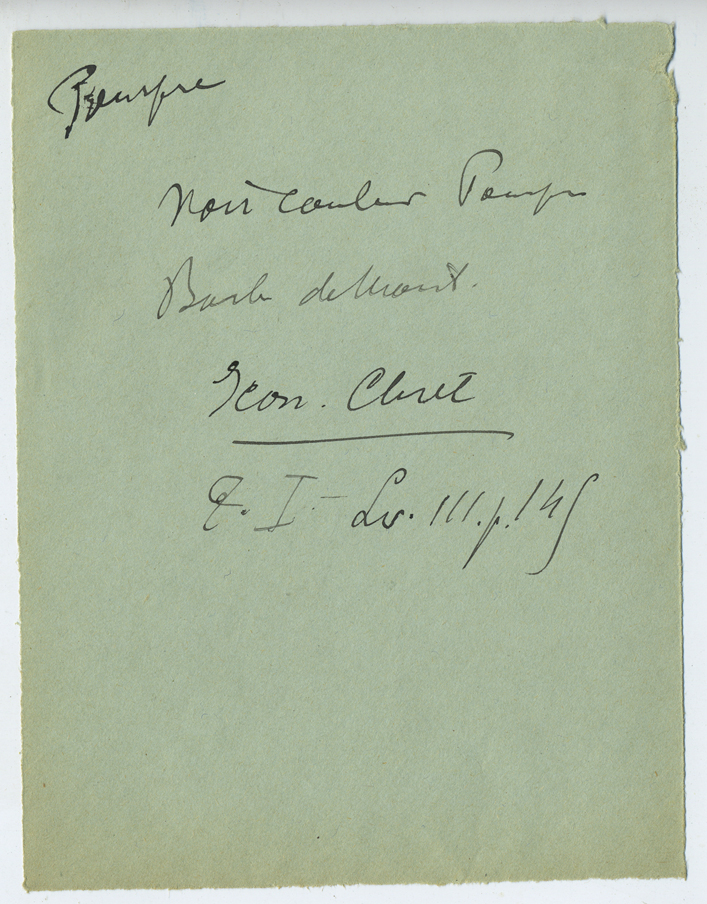 Pourpre
Noir couleur Pourpre
Barb. de Mont.
Icon. Chrét
T. I. - Lv. III. p. 145